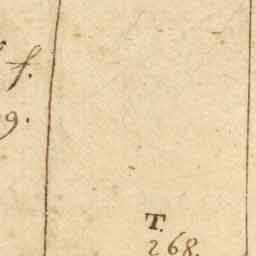 f.
9.
T.
268.